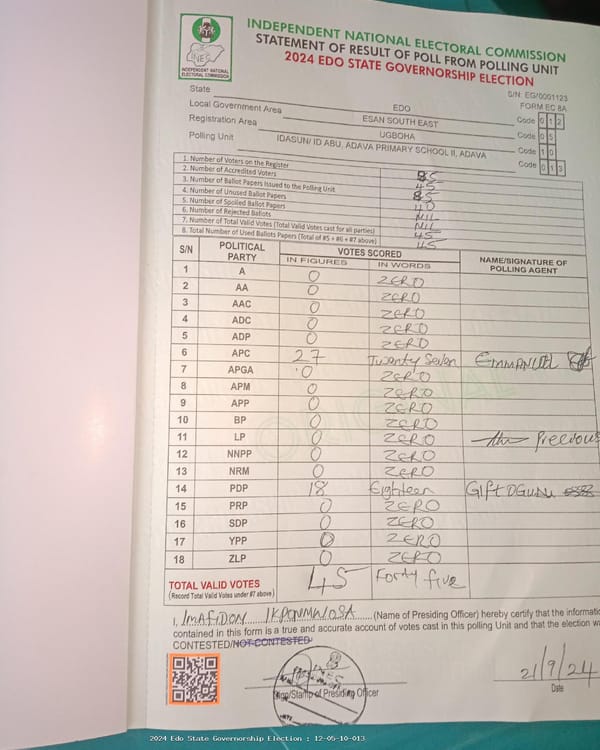 INDEPENDENT NATIONAL ELECTORAL COMMISSION
STATEMENT OF RESULT OF POLL FROM POLLING UNIT
2024 EDO STATE GOVERNORSHIP ELECTION
INEC
INDEPENDENT NATIONAL ELECTORAL COMMISSION
S/N: EG/0001123
FORM EC 8A
State EDO Code 0 1 2
Local Government Area ESAN SOUTH EAST Code 0 5
Registration Area UGBOHA Code 1 0
Polling Unit IDASUN/ ID ABU, ADAVA PRIMARY SCHOOL II, ADAVA Code 0 1 3
1. Number of Voters on the Register 85
2. Number of Accredited Voters 45
3. Number of Ballot Papers Issued to the Polling Unit 85
4. Number of Unused Ballot Papers 40
5. Number of Spoiled Ballot Papers NIL
6. Number of Rejected Ballots NIL
7. Number of Total Valid Votes (Total Valid Votes cast for all parties) 45
8. Total Number of Used Ballots Papers (Total of #5 + #6 + #7 above) 45
S/N POLITICAL PARTY VOTES SCORED NAME/SIGNATURE OF POLLING AGENT
IN FIGURES IN WORDS
1 A 0 ZERO
2 AA 0 ZERO
3 AAC 0 ZERO
4 ADC 0 ZERO
5 ADP 0 ZERO
6 APC 27 Twenty Seven EMMANUEL
7 APGA 0 ZERO
8 APM 0 ZERO
9 APP 0 ZERO
10 BP 0 ZERO
11 LP 0 ZERO Precious
12 NNPP 0 ZERO
13 NRM 0 ZERO
14 PDP 18 Eighteen Gift
15 PRP 0 ZERO
16 SDP 0 ZERO
17 YPP 0 ZERO
18 ZLP 0 ZERO
ORIGINAL
TOTAL VALID VOTES 45 Forty five
(Record Total Valid Votes under #7 above)
I, IMAFIDON IKPONMWOSA (Name of Presiding Officer) hereby certify that the informatio
contained in this form is a true and accurate account of votes cast in this polling Unit and that the election wa
CONTESTED/NOT CONTESTED
Sign/Stamp of Presiding Officer
21/9/24
Date
2024 Edo State Governorship Election : 12-05-10-013